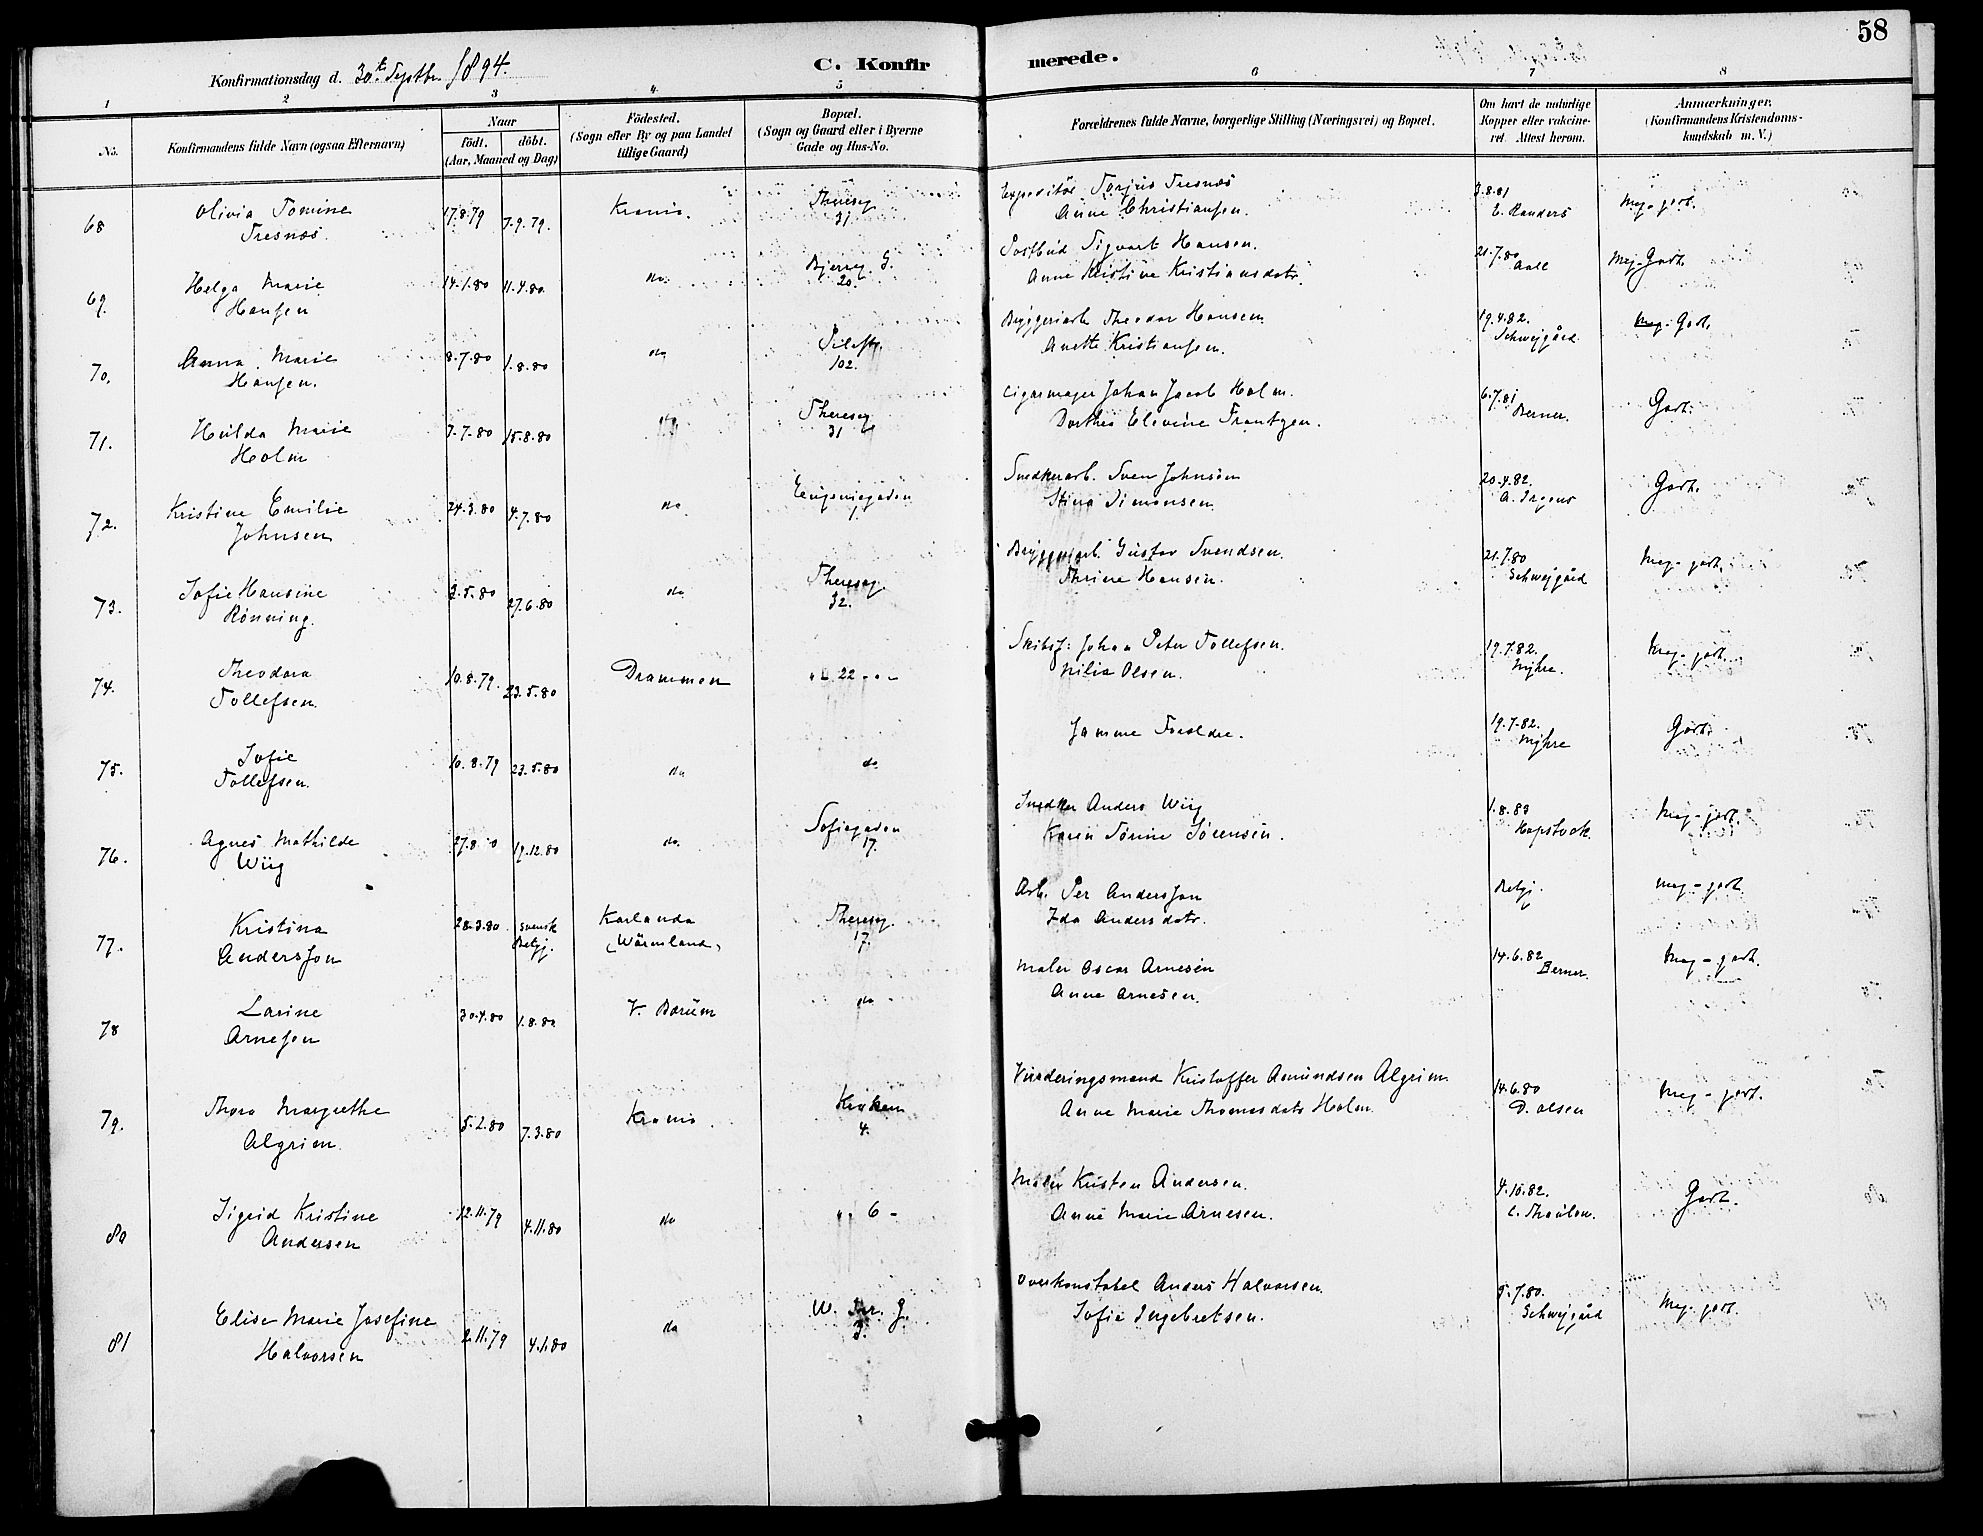 58
Konfirmationsdag d. 30te Septbr. 1894.
C. Konfirmerede.
1 2 3 4. 5 6 7 8
No.
Konfirmandens fulde Navn (ogsaa Efternavn)
Naar
födt. döbt.
(Aar, Maaned og Dag)
Födested.
(Sogn efler By og paa Landet
tillige Gaard)
Bopæl.
(Sogn og Gaard eller i Byerne
Gade og Hus-No.
Forældrenes fulde Navne, borgerlige Stilling (Næringsvei) og Bopæl.
Om havt de naturlige
Kopper eller vakcine-
ret. Attest herom.
Anmærkninger.
(Konfirmandens Kristendoms-
kundskab m. V.)
68 Olivia Tomine 17.8.79 7.9.79. Krania. Thereseg. Expeditör Torjus Tresnæs 3.8.81 Meg. godt.
Tresnæs. 31. Anne Christiansen. E. Randers
69. Helga Marie 14.1.80 11.4.80. do. Bjerreg. G. Postbud Sigvart Hansen. 21.7.80 Meg. Godt.
Hansen 20. Anne Kristine Kristiansdatr. Aall
70. Anna Marie 8.7.80 1.8.80 do Pilestr. Bryggeriarb. Theodor Hansen. 19.4.82. Meg. Godt.
Hansen. 102. Anette Kristiansen. Schweigård
71. Hulda Marie 7.7.80 15.8.80 do Thereseg. Cigarmager Johan Jacob Holm. 6.7.81 Godt.
Holm 31 Dorthea Elevine Frantzen. Berner.
72. Kristine Emilie 24.3.80 4.7.80 do Eugeniegaden Snedkerarb. Sven Johnsen 20.4.82. Godt.
Johnsen 1. Stina Simonsen. A. Irgens
73. Sofie Hansine 3.5.80 27.6.80 do Thereseg. Bryggeriarb. Gustav Svendsen. 21.7.80 Meg. godt.
Rönning. 32. Thrine Hansen. Schweigård
74. Theodora 10.8.79. 23.5.80 Drammen " 22 - " - Skibsf: Johan Peter Tollefsen. 19.7.82. Meg. godt.
Tollefsen. Milia Olsen. Myhre.
75. Sofie 10.8.79 23.5.80 do do Samme Forældre. 19.7.82. Godt.
Tollefsen. Myhre
76. Agnes Mathilde 27.8.80 19.12.80 do. Sofiegaden Snedker Anders Wiig 1.8.83 Meg. godt.
Wiig 17. Karen Sörine Sörensen. Hopstock.
77. Kristina 28.3.80 svensk Karlanda Thereseg. Arb. Per Andersson Betj. meg - godt.
Andersson Betj. (Wärmland) 17. Ida Andersdatr.
78 Larine 30.4.80 1.8.80 V. Bærum do Maler Oscar Arnesen 14.6.82 meg - godt.
Arnesen Anne Arnesen. Berner.
79. Thora Margrethe 5.2.80 7.3.80 Krania. Vurderingsmand Kristoffer Amundsen Algrim. 14.6.80 meg - godt.
Algrim. 4. Anne Marie Thomasdatr. Holm. D. Olsen
80 Sigrid Kristine 12.11.79 4.11.80 do " 6 - Maler Kristen Andersen. 4.10.82. Godt.
Andersen Anne Marie Arnesen. C. Thaulow.
81 Elise Marie Josefine 2.11.79 4.1.80 do W. Thr. G. Overkonstabel Anders Halvorsen. 5.7.80. Meg. godt.
Halvorsen 3. Sofie Ingebretsen. Schweigård